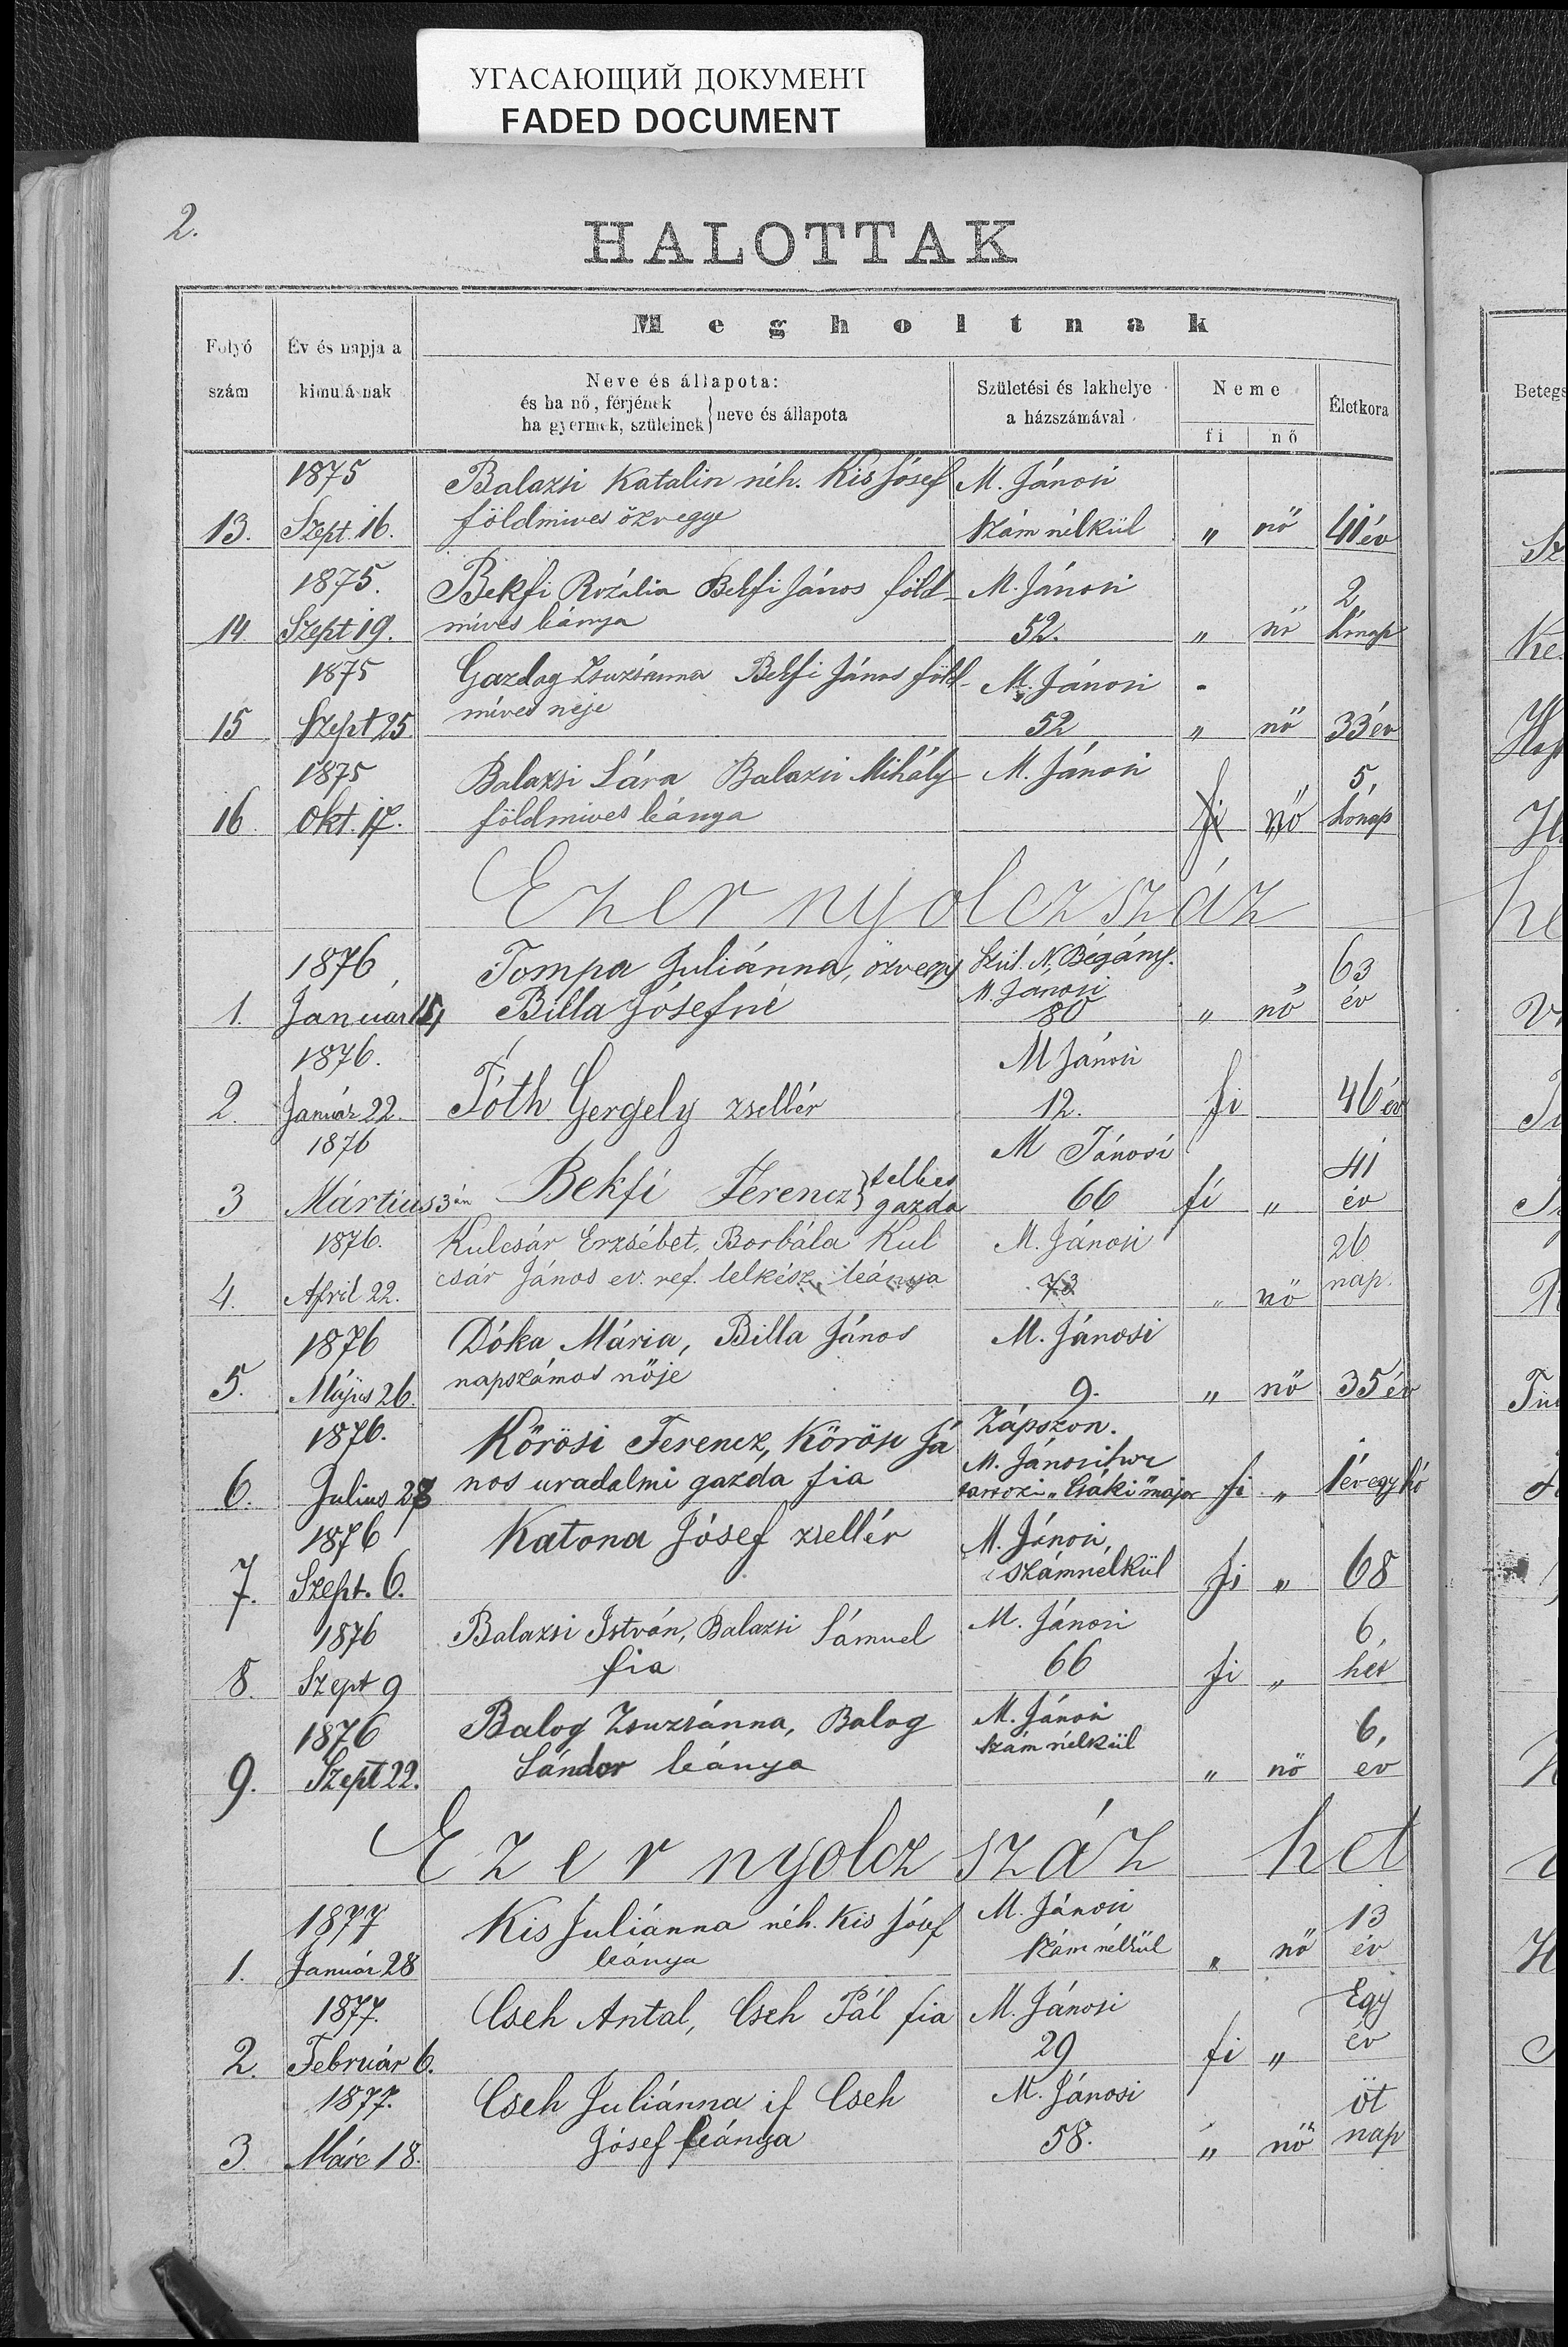 УГАСАЮЩИЙ ДОКУМЕНТ
FADED DOCUMENT
2.
HALOTTAK
Folyó szám
Év és napja a kimulásnak
Megholtnak
Neve és állapota:
és ha nő, férjének
ha gyermek, szüleinek } neve és állapota
Születési és lakhelye
a házszámával
Neme
fi nő
Életkora
Betegs
1875 Balazsi Katalin néh. Kis Jósef M. Jánosi
13. Szept. 16. földmives özvegye Szám nélkül " nő 41 év
1875. Bekfi Rozália Bekfi János föld- M. Jánosi 2
14 Szept 19. mives leánya 52. " nő hónap
1875 Gazdag Zsuzsánna Bekfi János föld- M. Jánosi
15 Szept 25 mives neje 52 " nő 33 év
1875 Balazsi Sára Balazsi Mihály M. Jánosi 5,
16. Okt. 17. földmives leánya fi nő hónap
Ezer nyolcz száz
1876, Tompa Juliánna, özvegy Szül. N. Bégány. 63
1. Január 15, Billa Jósefné M. Jánosi 80 " nő év
1876. M Jánosi
2. Január 22. Tóth Gergely zsellér 12. fi 46 év
1876 M Jánosi 41
3 Mártius 3án Bekfi Ferencz } telkes gazda 66 fi " év
1876. Kulcsár Erzsébet, Borbála Kul M. Jánosi 26
4. April 22. csár János ev. ref. lelkész leánya 73 " nő nap.
1876 Dóka Mária, Billa János M. Jánosi
5. Május 26. napszámos nője 9. " nő 35 év
1876. Körösi Ferencz, Körösi Já Zápszon.
6. Julius 28 nos uradalmi gazda fia M. Jánosihoz
tartozi „Csáki" major fi " 1 év egy hó
1876 Katona Jósef zsellér M. Jánosi,
7. Szept. 6. számnelkül fi " 68
1876 Balazsi István, Balazsi Sámuel M. Jánosi 6,
8. Szept 9 fia 66 fi " hét
1876 Balog Zsuzsánna, Balog M. Jánosi 6,
9. Szept 22. Sándor leánya szám nélkül " nő ev
Ezer nyolcz száz het
1877 Kis Juliánna néh. Kis Jósef M. Jánosi 13
1. Január 28 leánya Szám nélkül " nő év
1877. Cseh Antal, Cseh Pál fia M. Jánosi Egy
2. Február 6. 29 fi " év
1877. Cseh Juliánna if Cseh M. Jánosi öt
3 Márc 18. Jósef leánya 58. " nő nap